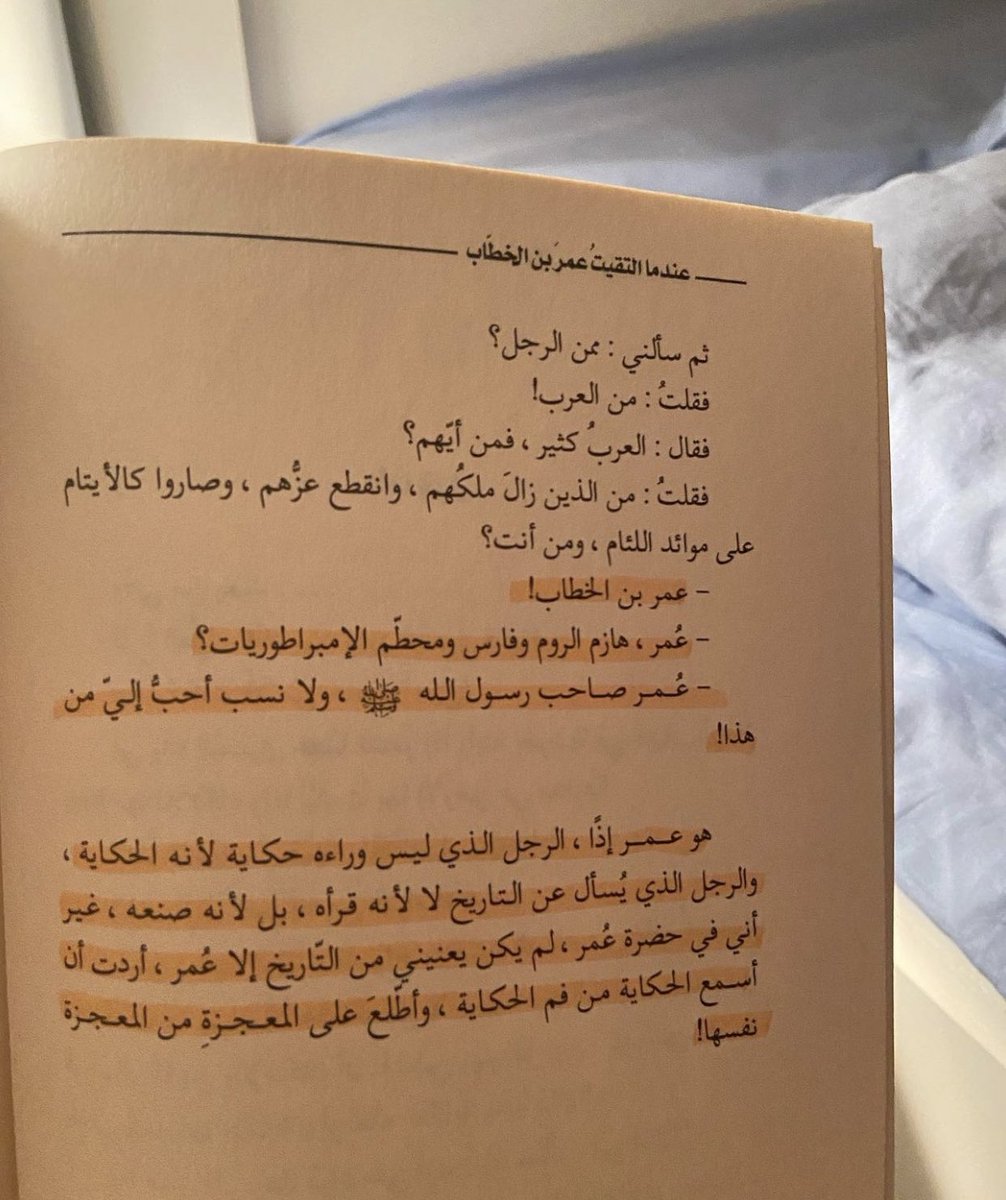 عندما التقيتُ عمرَ بن الخطَاب
ثم سألني : ممن الرجل؟
فقلتُ : من العرب!
فقال : العربُ كثير ، فمن أيّهم؟
فقلتُ : من الذين زالَ ملكُهم ، وانقطع عزُّهم ، وصاروا كالأيتام
على موائد اللئام ، ومن أنت؟
– عمر بن الخطاب!
– عُمر ، هازم الروم وفارس ومحطّم الإمبراطوريات؟
– عُـمـر صـاحب رسـول الـله ﷺ ، ولا نسب أحبُّ إليّ من
هذا!
هو عـمـر إذًا ، الرجل الـذي ليس وراءه حكـاية لأنـه الحكاية ،
والرجل الذي يُسأل عن التاريخ لا لأنه قرأه ، بل لأنه صنعه ، غير
أني في حضرة عُمر ، لم يكن يعنيني من التّاريخ إلا عُمر ، أردت أن
أسـمع الحكاية من فم الحكاية ، وأطّلعَ على المعـجـزةِ من المعـجـزة
نفسها!